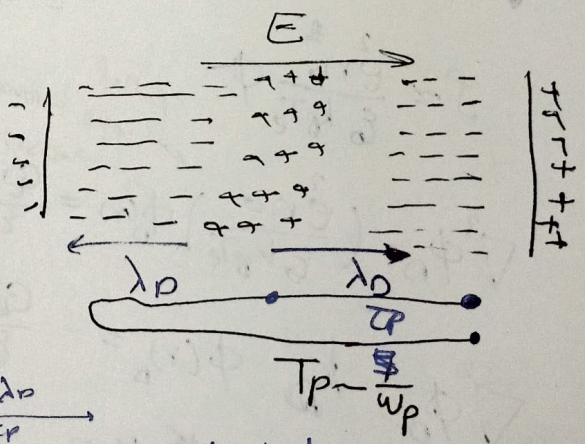 E
λD λD
τP
TP ~ 1/ωp
λD